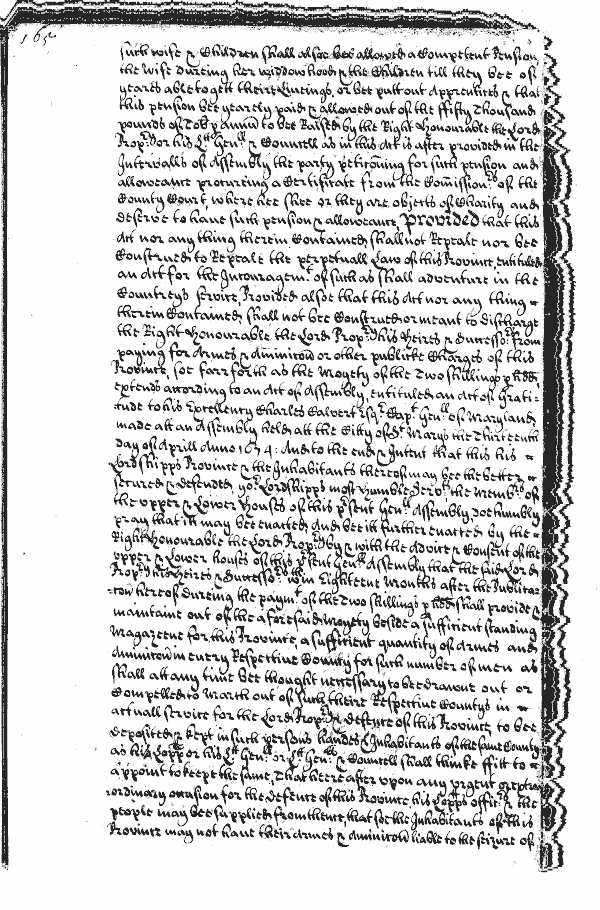 165
such wife & Children shall alsoe bee allowed a Competent Pension
the wife dureing her widdowhood & the Children till they bee of
yeares able to gett theire Liveings, or bee putt out Apprentices & that
this pension bee yearely paid & allowed out of the ffifty Thousand
pounds of Tob p annũ to bee Raised by the Right Honourable the Lord
Propr͞y or his Ltt Genll & Councell as in this Act is after provided in the
Intervalls of Assembly the party peticoning for such pension and
alloweance procureing a Certificate from the Comissionrs of the
County Court, where hee shee or they are objects of Charity and
deserve to have such pension & alloweance, Provided that this
Act nor any thing therein Contained shall not Repeale nor bee
Construed to Repeale the perpetuall Law of this Province, entituled
an Act for the Incouragemt of such as shall adventure in the
Countreys service, Provided alsoe that this Act nor any thing =
therein Contained, shall not bee Construed or meant to discharge
the Right Honourable the Lord Propry his heires & Successors from
paying for Armes & Aminition or other publicke Charges of this
Province, soe farr forth as the Moyety of the Two shillings p hhd
extends according to an Act of Assembly, entituled an Act of Grati=
=tude to his Excellency Charles Calvert Esqr Capt Genll of Maryland
made att an Assembly held att the Citty of St Marys the Thirteenth
day of Aprill Anno 1674: And to the end & Intent that this his =
Lordshipps Province & the Inhabitants thereof may bee the better =
secured & defended, yor Lordshipps most humble Servts the Membrs of
the upper & Lower Houses of this psent Genll Assembly, doe humbly
pray that itt may bee enacted, And bee itt further enacted by the =
Right Honourable the Lord Propry by & with the Advice & Consent of the
upper & Lower houses of this psent Genll Assembly that the said Lord
Propry his heires & Successors wthin Eighteene Months after the Publica=
=con hereof dureing the paymt of the Two shillings p hhd shall provide &
maintaine out of the aforesaid Moyety beside a sufficient standing
Magazeene for this Province, a sufficient quantity of Armes and
Aminition in every Respective County for such number of men as
shall att any time bee thought necessary to bee drawne out or
Compelled to March out of such theire Respective Countys in =
actuall service for the Lord Propry & defence of this Province, to bee
deposited & kept in such persons handes & Inhabitants of the same County
as his Lopp or his Ltt Genll or Ltt Genll & Councell shall thinke ffitt to =
appoint to keepe the same, That hereafter upon any urgent or extra
=ordinary occasion for the defence of this Province his Lopps officrs & the
people may bee supplied from thence, that soe the Inhabitants of this
Province may not have their Armes & Aminition liable to the seizure of